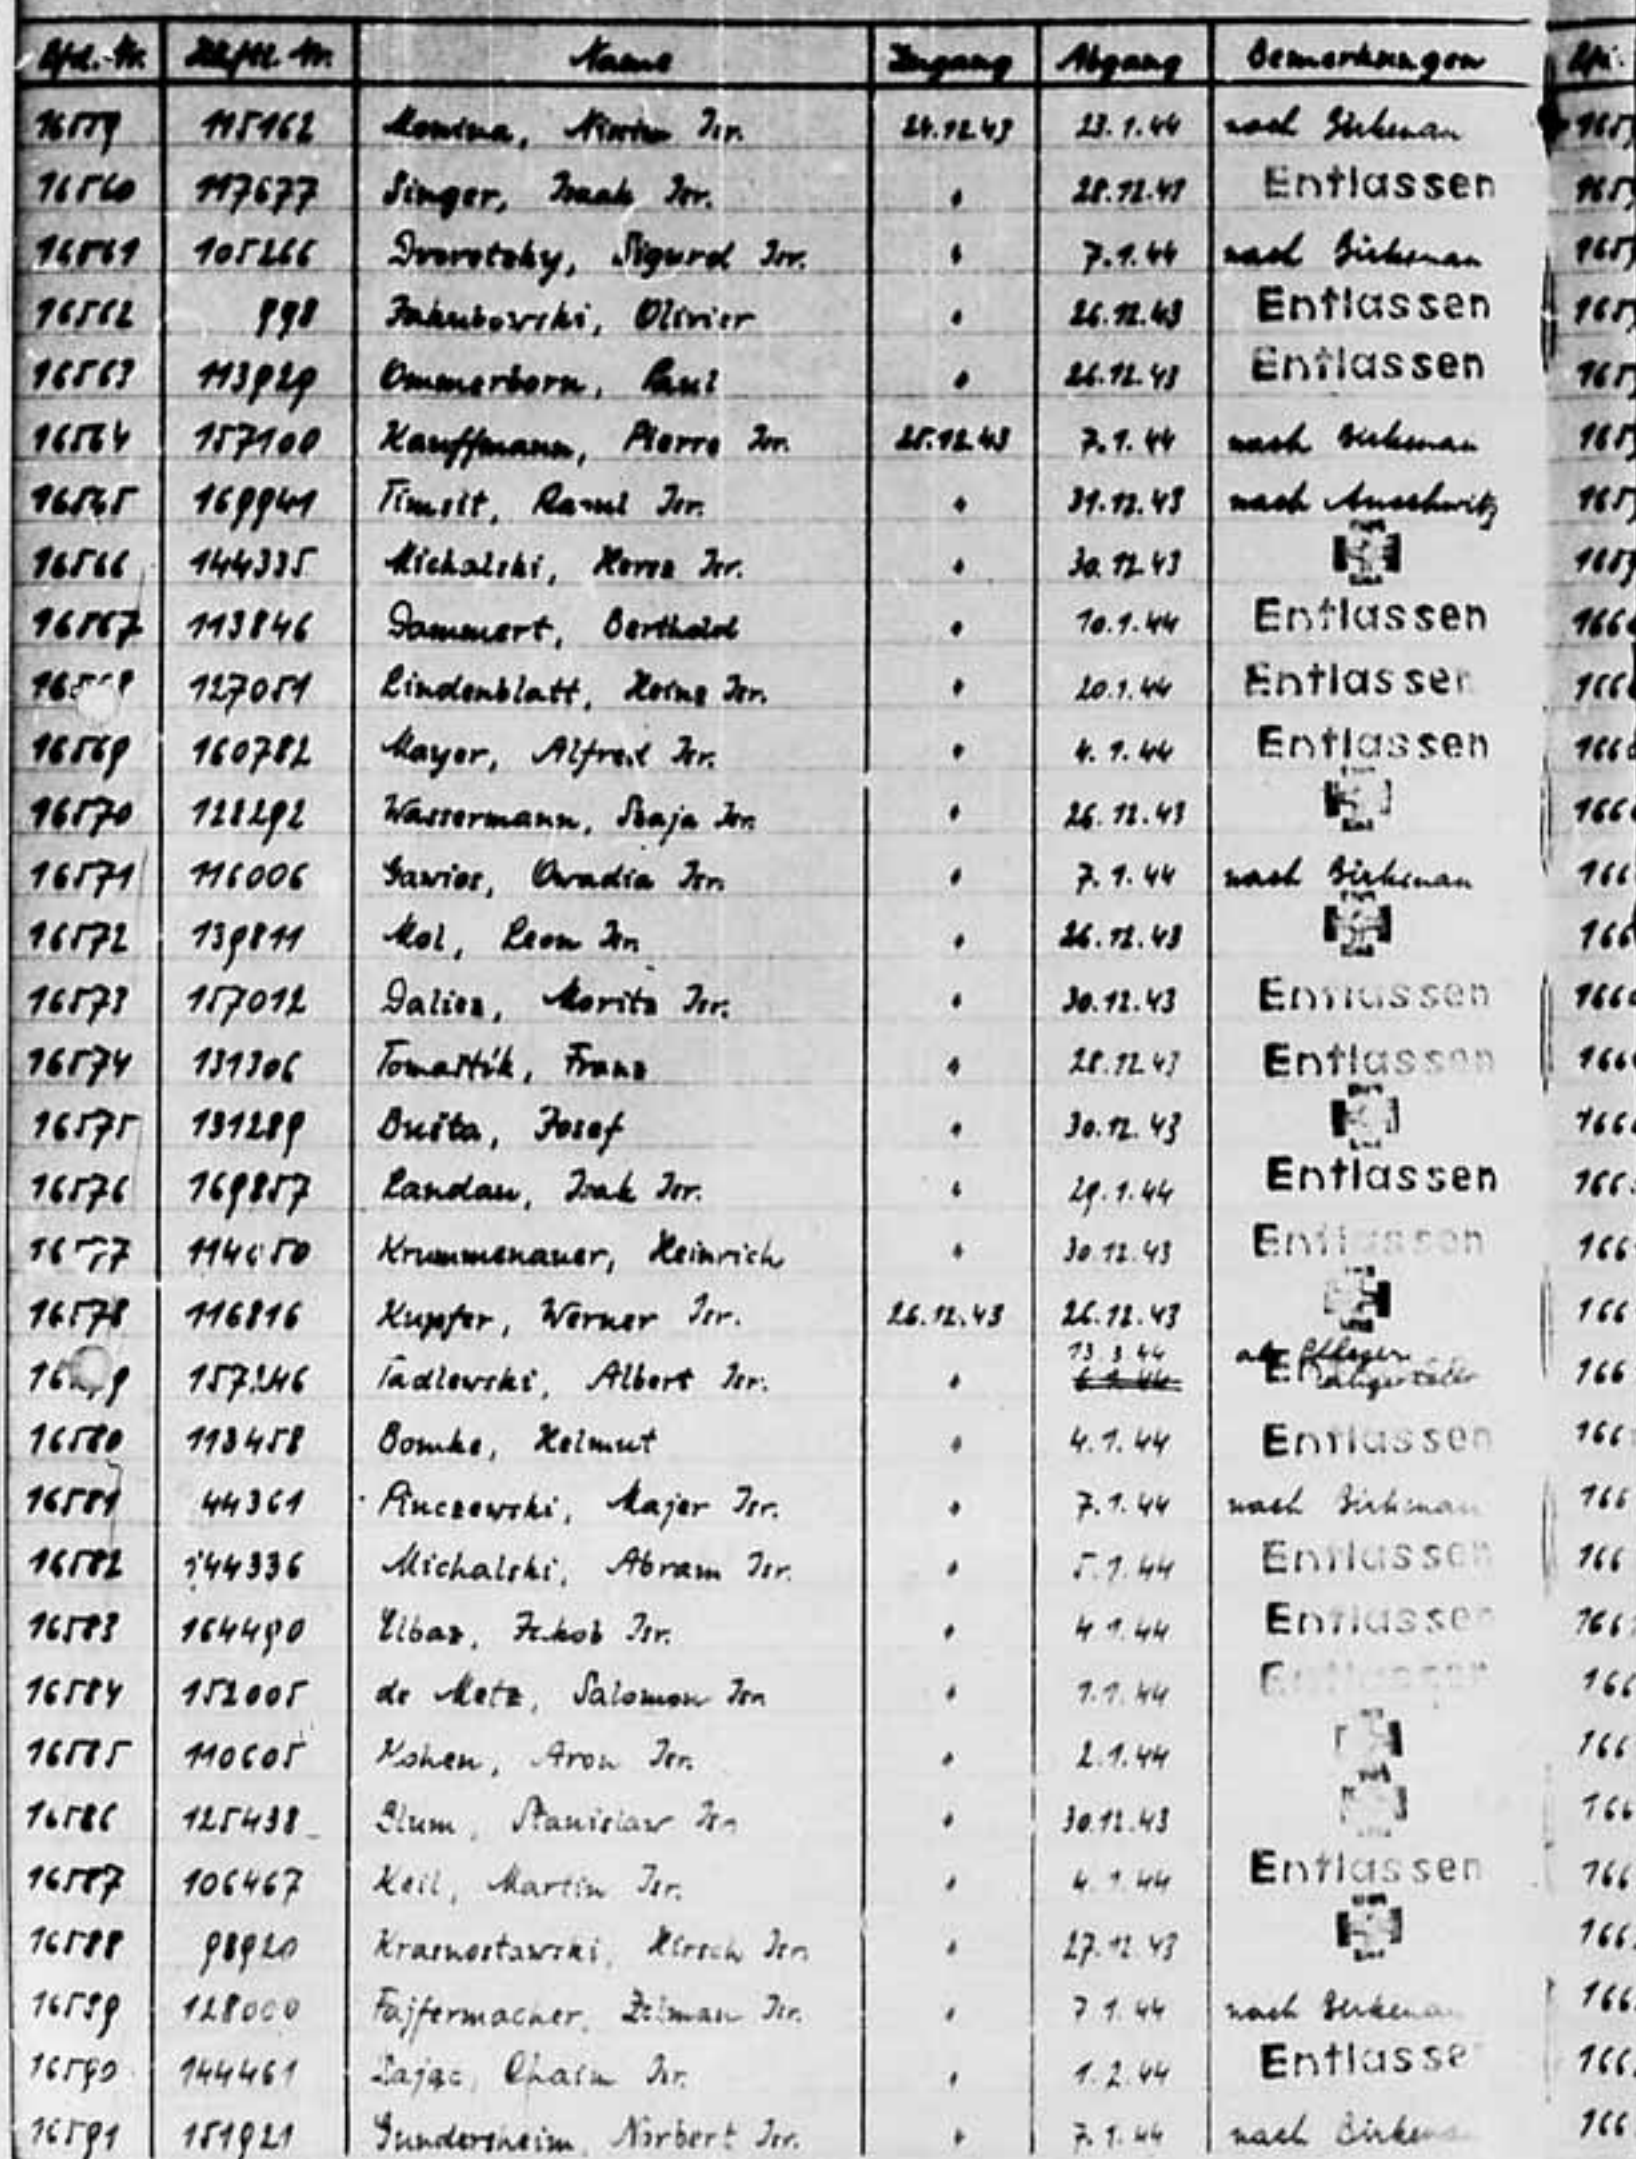 Lfd.-Nr. Häftl. Nr. Name Zugang Abgang Bemerkungen Lfd.
16559 115162 Isr. 24.12.43 23.1.44 nach Birkenau 1659
16560 117677 Singer, Isaak Isr. " 28.12.43 Entlassen 1659
16561 105266 Dvorotzky, Sigurd Isr. " 7.1.44 nach Birkenau 1659
16562 998 Jakubowski, Olivier " 26.12.43 Entlassen 1659
16563 113929 Ommerborn, Paul " 26.12.43 Entlassen 1659
16564 157100 Kauffmann, Pierre Isr. 25.12.43 7.1.44 nach Birkenau 1659
16565 169941 Timsit, Raoul Isr. " 31.12.43 nach Auschwitz 1659
16566 144335 Michalski, Hersz Isr. " 30.12.43 1659
16567 113846 Dammert, Berthold " 10.1.44 Entlassen 166
127051 Lindenblatt, Heinz Isr. " 20.1.44 Entlassen 166
16569 160782 Mayer, Alfred Isr. " 4.1.44 Entlassen 166
16570 128292 Wassermann, Szaja Isr. " 26.12.43 166
16571 116006 Owadia Isr. " 7.1.44 nach Birkenau 166
16572 139811 Mol, Leon Isr. " 26.12.43 166
16573 157012 Moritz Isr. " 30.12.43 Entlassen 166
16574 131306 Tomaštík, Franz " 28.12.43 Entlassen 166
16575 131289 Bušta, Josef " 30.12.43 166
16576 169857 Landau, Isak Isr. " 29.1.44 Entlassen 166
Krummenauer, Heinrich " 30.12.43 Entlassen 166
16578 116816 Kupfer, Werner Isr. 26.12.43 26.12.43 166
13.3.44 als Pfleger
Tadlewski, Albert Isr. " 6.1.44 166
16580 113458 Bomke, Helmut " 4.1.44 Entlassen 166
16581 44361 Pinczewski, Majer Isr. " 7.1.44 nach Birkenau 166
16582 144336 Michalski, Abram Isr. " 5.1.44 Entlassen 166
16583 164490 Elbaz, Jakob Isr. " 4.1.44 Entlassen 166
16584 152005 de Metz, Salomon Isr. " 1.1.44 Entlassen 166
16585 110605 Kohen, Aron Isr. " 2.1.44 166
16586 125438 Blum, Stanislaw Isr. " 30.12.43 166
16587 106467 Keil, Martin Isr. " 4.1.44 Entlassen 166
16588 98920 Krasnostawski, Hirsch Isr. " 27.12.43 166
16589 128000 Fajfermacher, Zelman Isr. " 7.1.44 nach Birkenau 166
16590 144461 Zając, Chaim Isr. " 1.2.44 Entlassen 166
16591 151921 Gundersheim, Norbert Isr. " 7.1.44 nach Birkenau 166